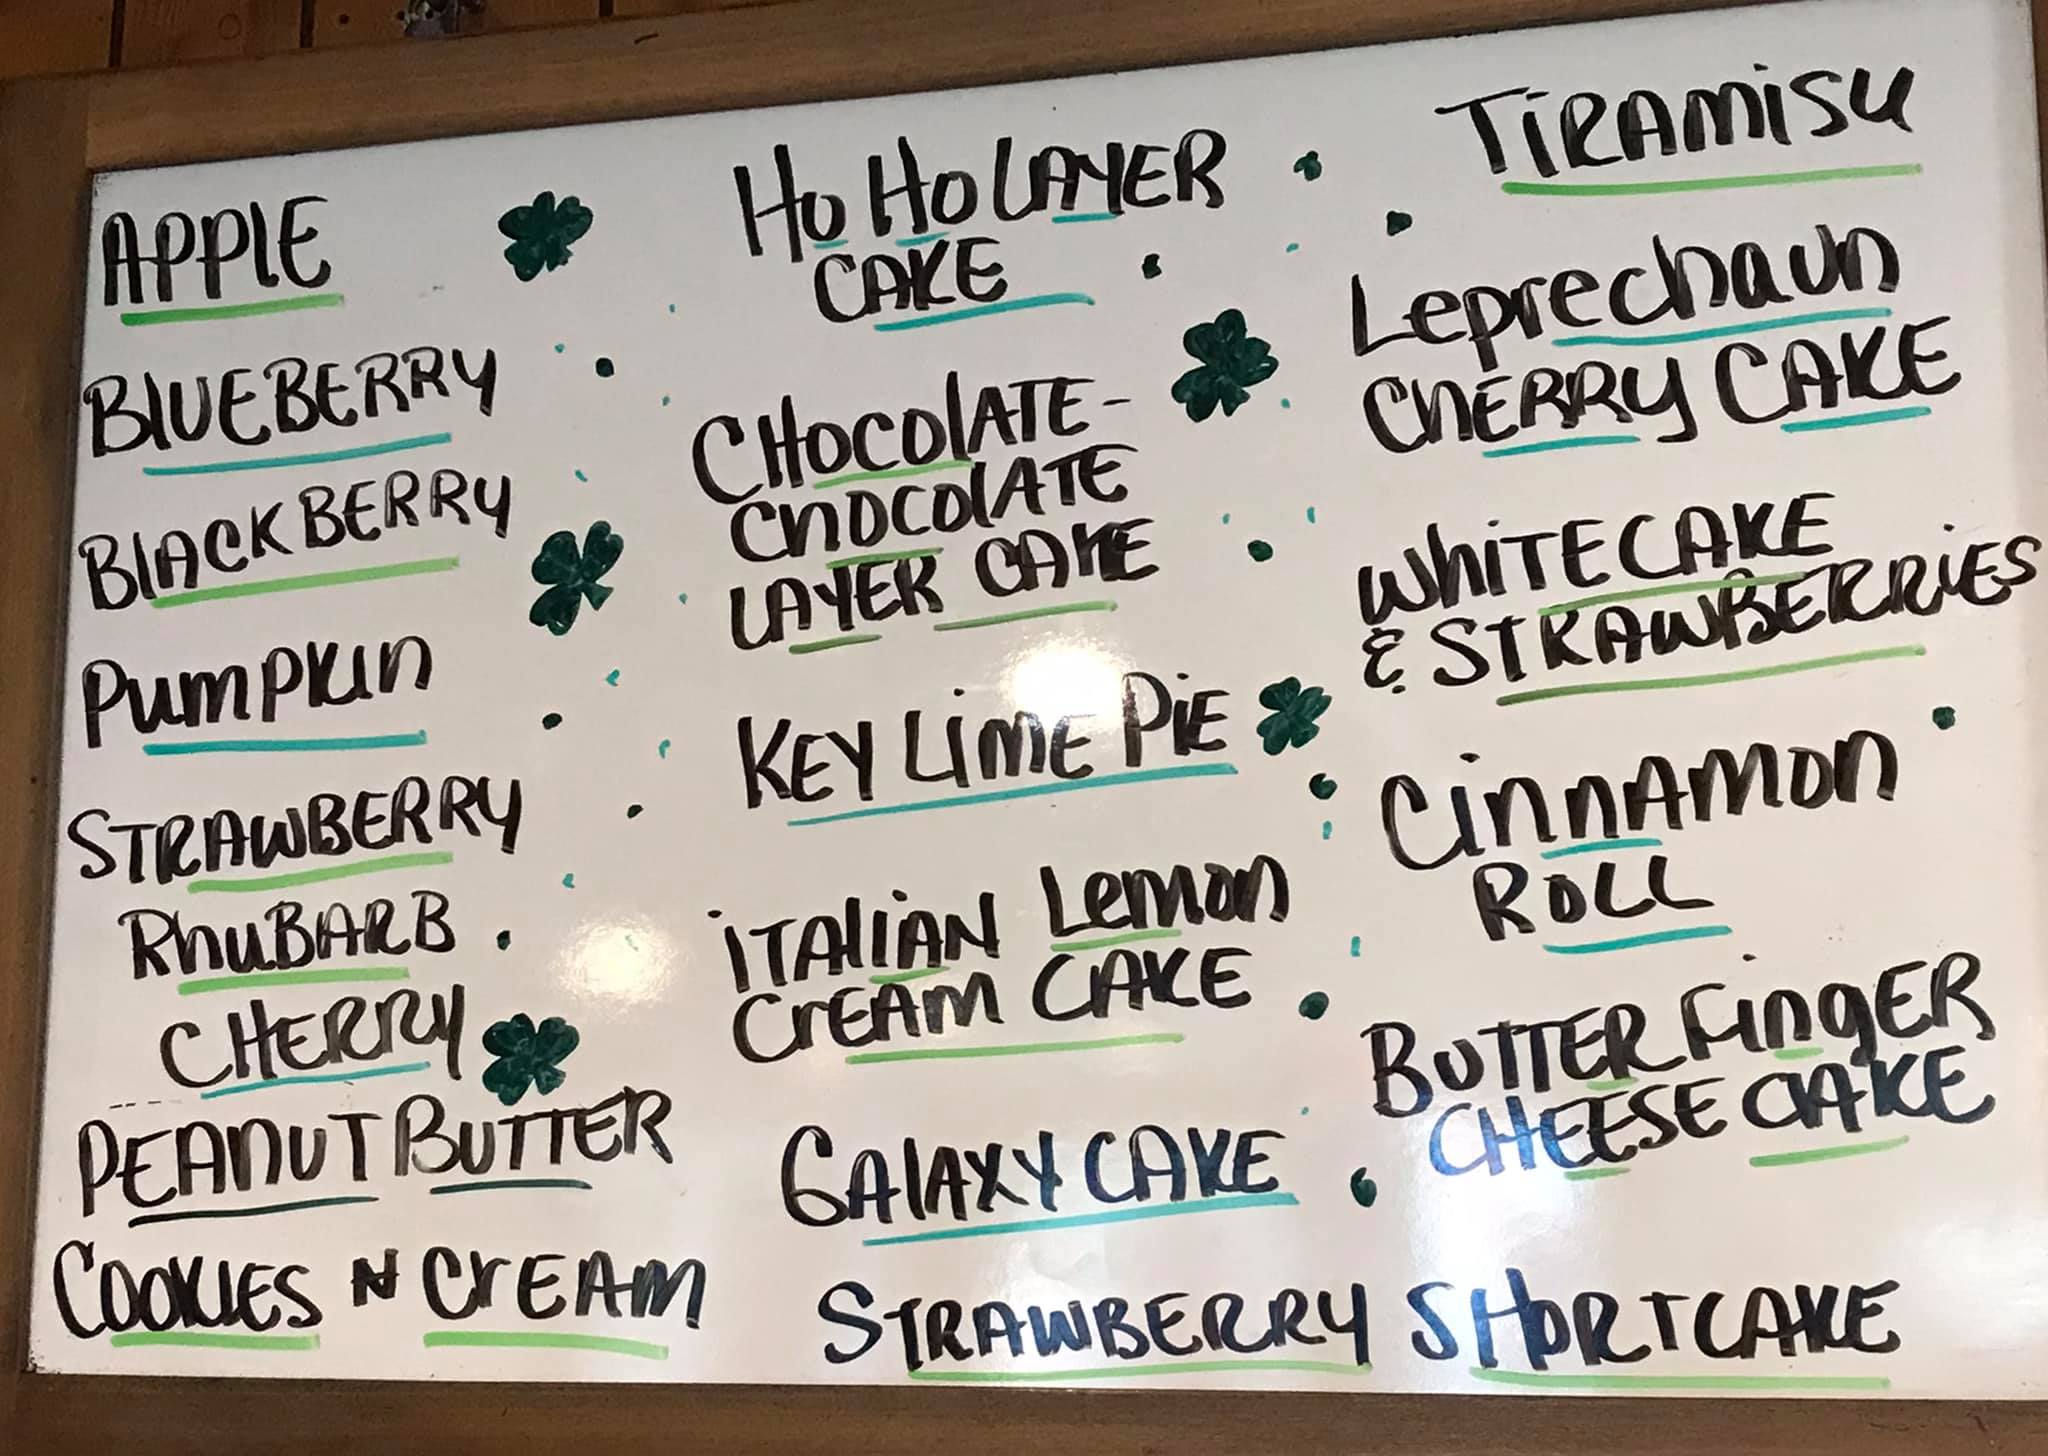 APPLE
BLUEBERRY
BLACKBERRY
PUMPKIN
STRAWBERRY
RHUBARB
CHERRY
PEANUT BUTTER
COOKIES N CREAM
HO HO LAYER
CAKE
CHOCOLATE-
CHOCOLATE
LAYER CAKE
KEY LIME PIE
ITALIAN LEMON
CREAM CAKE
GALAXY CAKE
STRAWBERRY SHORTCAKE
TIRAMISU
Leprechaun
CHERRY CAKE
WHITE CAKE
& STRAWBERRIES
CINNAMON
ROLL
BUTTERFINGER
CHEESE CAKE